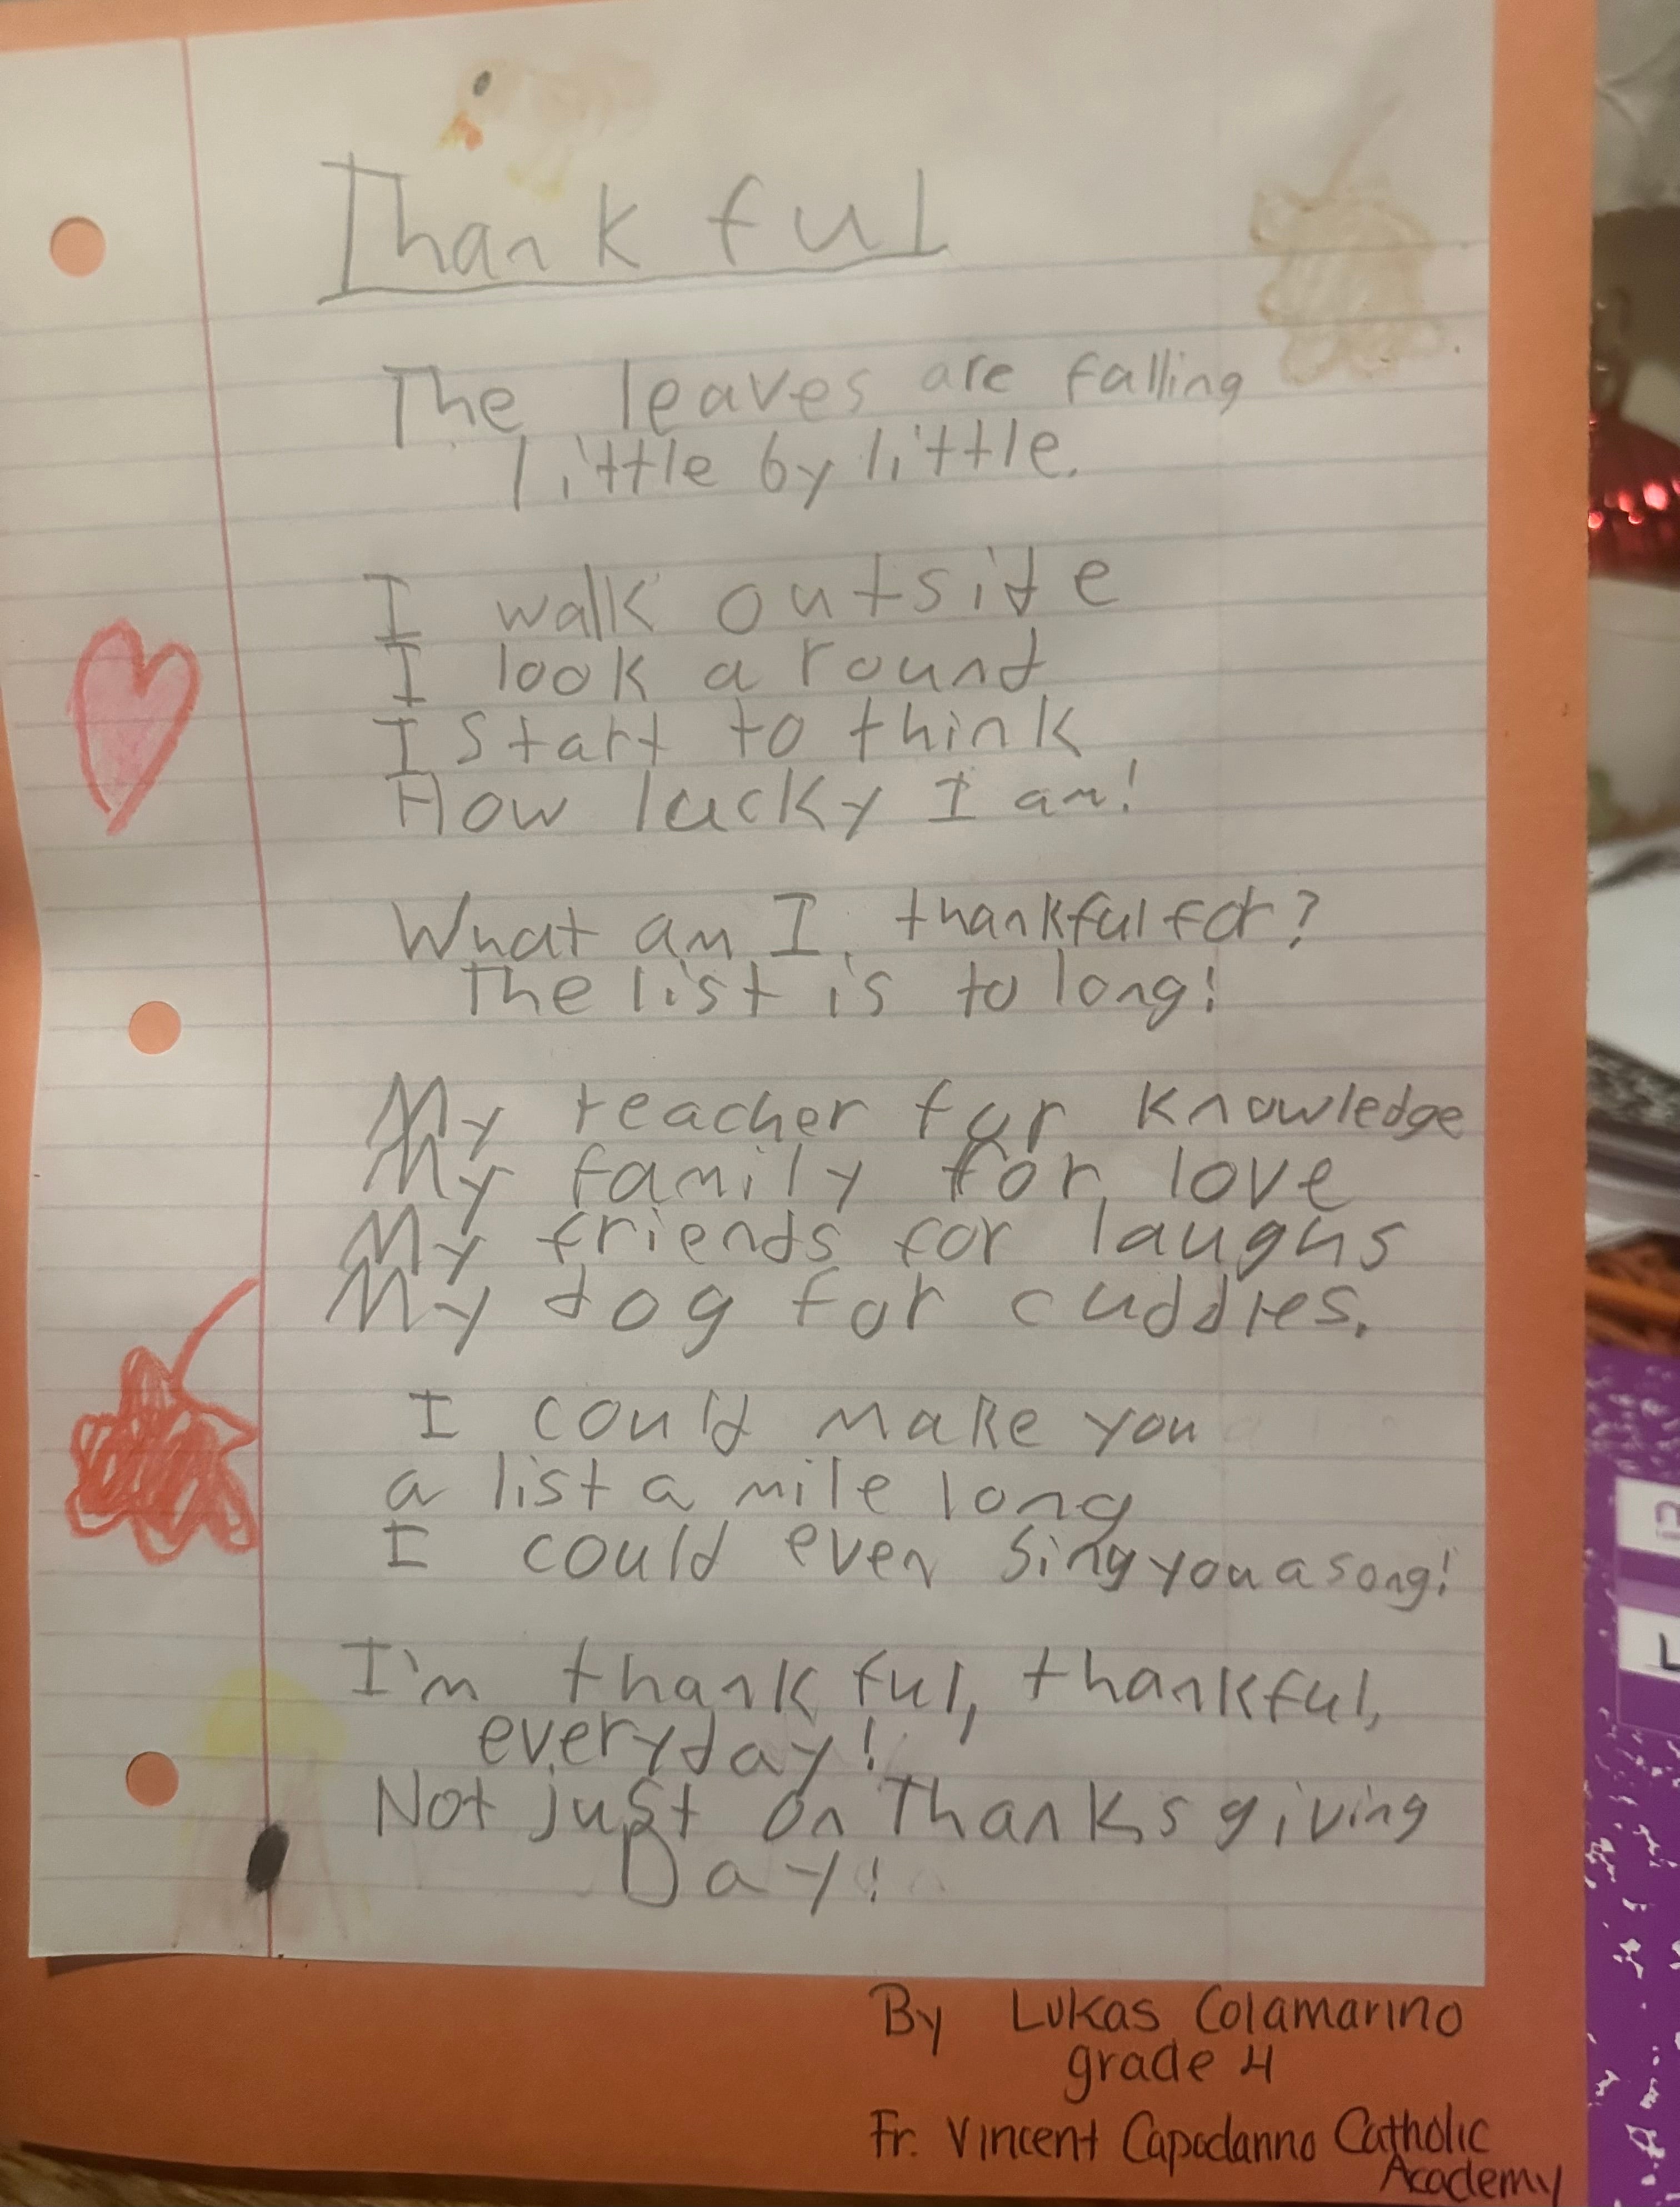 Thankful
The leaves are falling
little by little.
I walk outside
I look around
I start to think
How lucky I am!
What am I thankful for?
The list is to long!
My teacher for knowledge
My family for love
My friends for laughs
My dog for cuddles.
I could make you
a list a mile long
I could even sing you a song!
I'm thankful, thankful,
everyday!
Not just on Thanksgiving
Day!
By Lukas Colamarino
grade 4
Fr. Vincent Capodanno Catholic
Academy